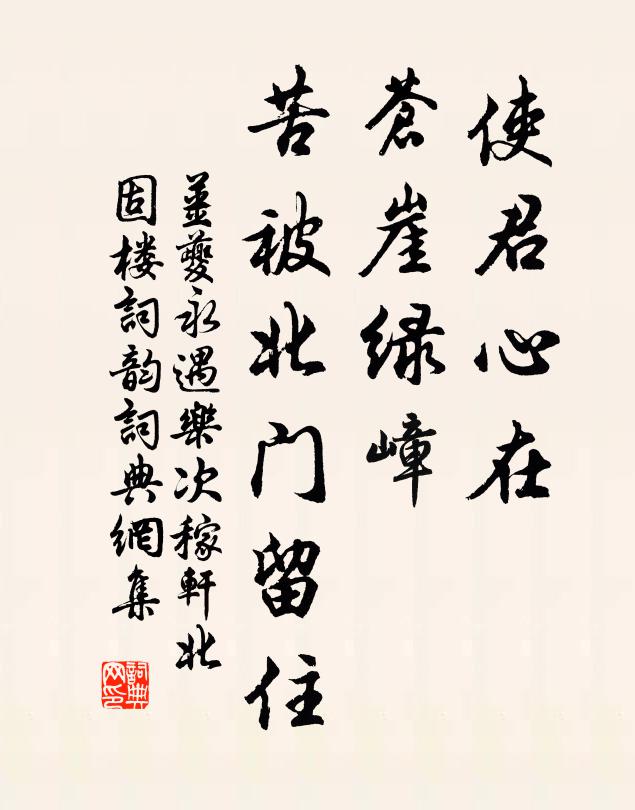 使君心在
蒼崖绿嶂
苦被北门留住
姜夔永遇樂次稼軒北
固楼詞韵詞典網集
詞典网印